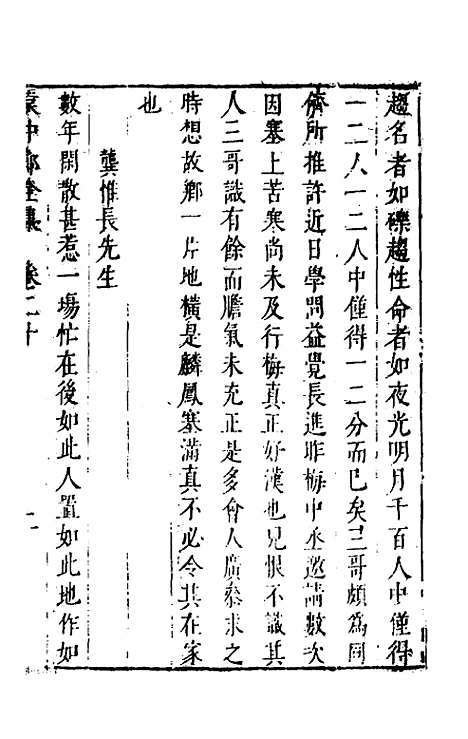 趨名者如礫趨性命者如夜光明月千百人中僅得
一二人一二人中僅得一二分而已矣三哥頗為同
儕所推許近日學問益覺長進昨梅中丞邀請數次
因塞上苦寒尚未及行梅真正好漢也兄恨不識其
人三哥識有餘而膽氣未充正是多會人廣參求之
時想故鄉一片地橫是麟鳳塞滿真不必令其在家
也
龔惟長先生
數年閑散甚惹一場忙在後如此人置如此地作如
袁中郎全集 卷二十